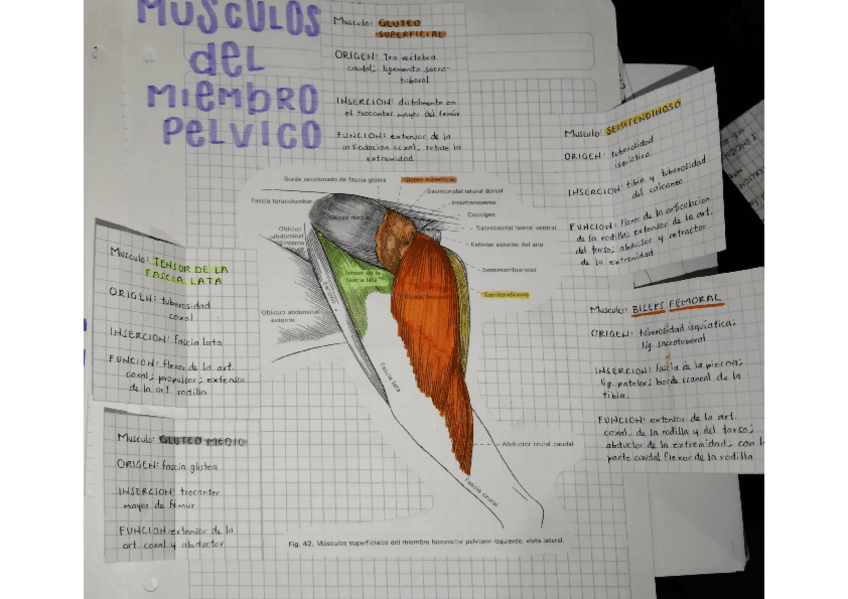 MUSCULOS
del
MIEMBRO
PELVICO
Musculo: GLUTEO
SUPERFICIAL
ORIGEN: 1ra vertebra
caudal; ligamento sacro-
tuberal
INSERCION: distalmente en
el trocanter mayor del femur
FUNCION: extensor de la
articulacion coxal, retrae la
extremidad
Musculo: SEMITENDINOSO
ORIGEN: tuberosidad
isquiatica
INSERCION: tibia y tuberosidad
del calcaneo
FUNCION: flexor de la articulacion
de la rodilla; extensor de la art.
del tarso; abductor y retractor
de la extremidad
Musculo: TENSOR DE LA
FASCIA LATA
ORIGEN: tuberosidad
coxal
INSERCION: fascia lata
FUNCION: flexor de la art.
coxal; propulsor; extensor
de la art. rodilla
Musculo: GLUTEO MEDIO
ORIGEN: fascia glutea
INSERCION: trocanter
mayor de fémur
FUNCION: extensor de la
art. coxal y abductor
Musculo: BICEPS FEMORAL
ORIGEN: tuberosidad isquiatica;
lig. sacrotuberal
INSERCION: fascia de la pierna;
lig. patelar; borde craneal de la
tibia.
FUNCION: extensor de la art.
coxal, de la rodilla y del tarso;
abductor de la extremidad; con l
parte caudal flexor de la rodilla
Borde seccionado de fascia glútea
Glúteo superficial
Sacrocaudal lateral dorsal
Intertransverso
Fascia toracolumbar
Coccígeo
Glúteo medio
Sacrocaudal lateral ventral
Oblicuo
abdominal
interno
Esfínter externo del ano
Tensor de la
fascia lata
Semimembranoso
Bíceps femoral
Semitendinoso
Sartorio
Oblicuo abdominal
externo
Fascia lata
Abductor crural caudal
Fascia crural
Fig. 42. Músculos superficiales del miembro izquierdo, vista lateral.